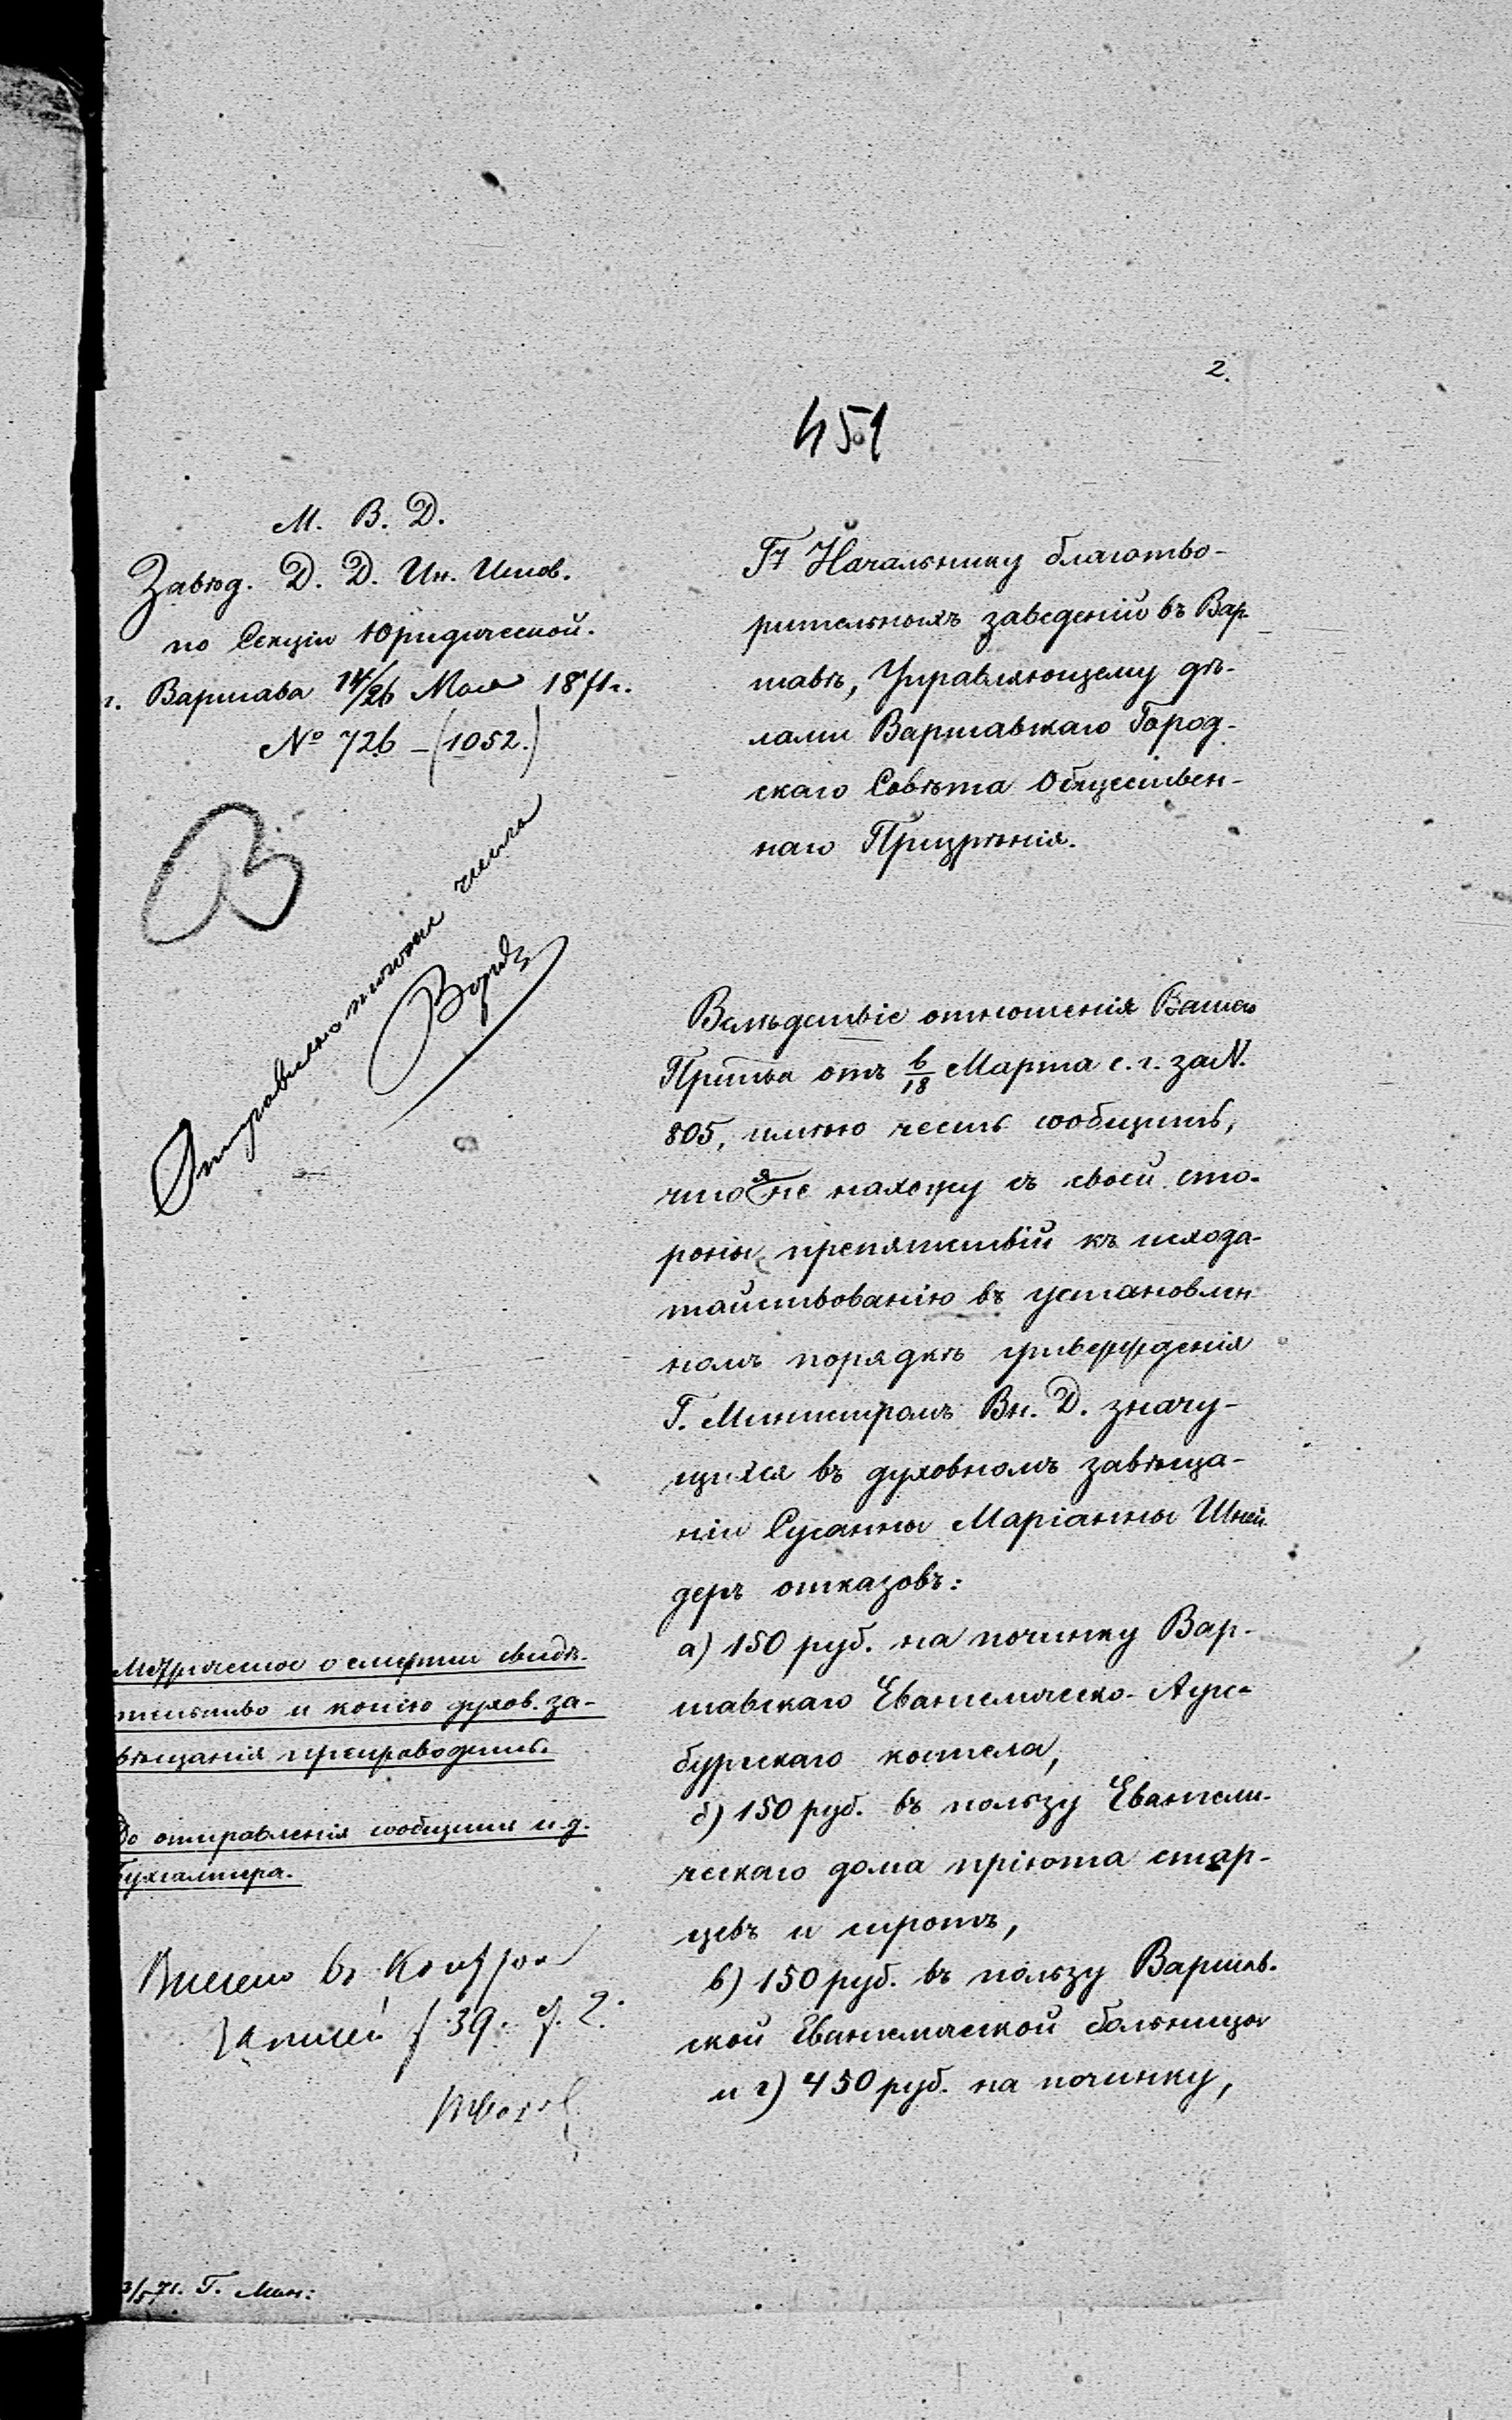 2.
451
М. В. Д.
Завѣд. Д. Д. Ин. Испов.
по Секціи Юридической.
г. Варшава 14/26 Мая 1871 г.
№ 726 - (1052.)
Г. Начальнику благотво-
рительныхъ заведеній въ Вар-
шавѣ, Управляющему дѣ-
лами Варшавскаго Город-
скаго Совѣта Обществен-
наго Призрѣнія.
Вслѣдствіе отношенія Вашего
Пр-ства отъ 6/18 Марта с. г. за N.
805, имѣю честь сообщить,
что я не нахожу съ своей сто-
роны препятствій къ исхода-
тайствованію въ установлен
номъ порядкѣ утвержденія
Г. Министромъ Вн. Д. значу-
щихся въ духовномъ завѣща-
ніи Сусанны Маріанны Шней
деръ отказовъ:
а) 150 руб. на починку Вар-
шавскаго Евангелическо-Аугс-
бургскаго костела,
б) 150 руб. въ пользу Евангели-
ческаго дома пріюта стар-
цевъ и сиротъ,
в) 150 руб. въ пользу Варшав-
ской Евангелической больницы
и г) 450 руб. на починку,
Отправлено
числа
Метрическое о смерти свидѣ-
тельство и копію духов. за-
вѣщанія препроводить.
До отправленія сообщить и. д.
Бухгалтера.
Внесено въ
записей f 39.
3/5 71. Г. Мин: